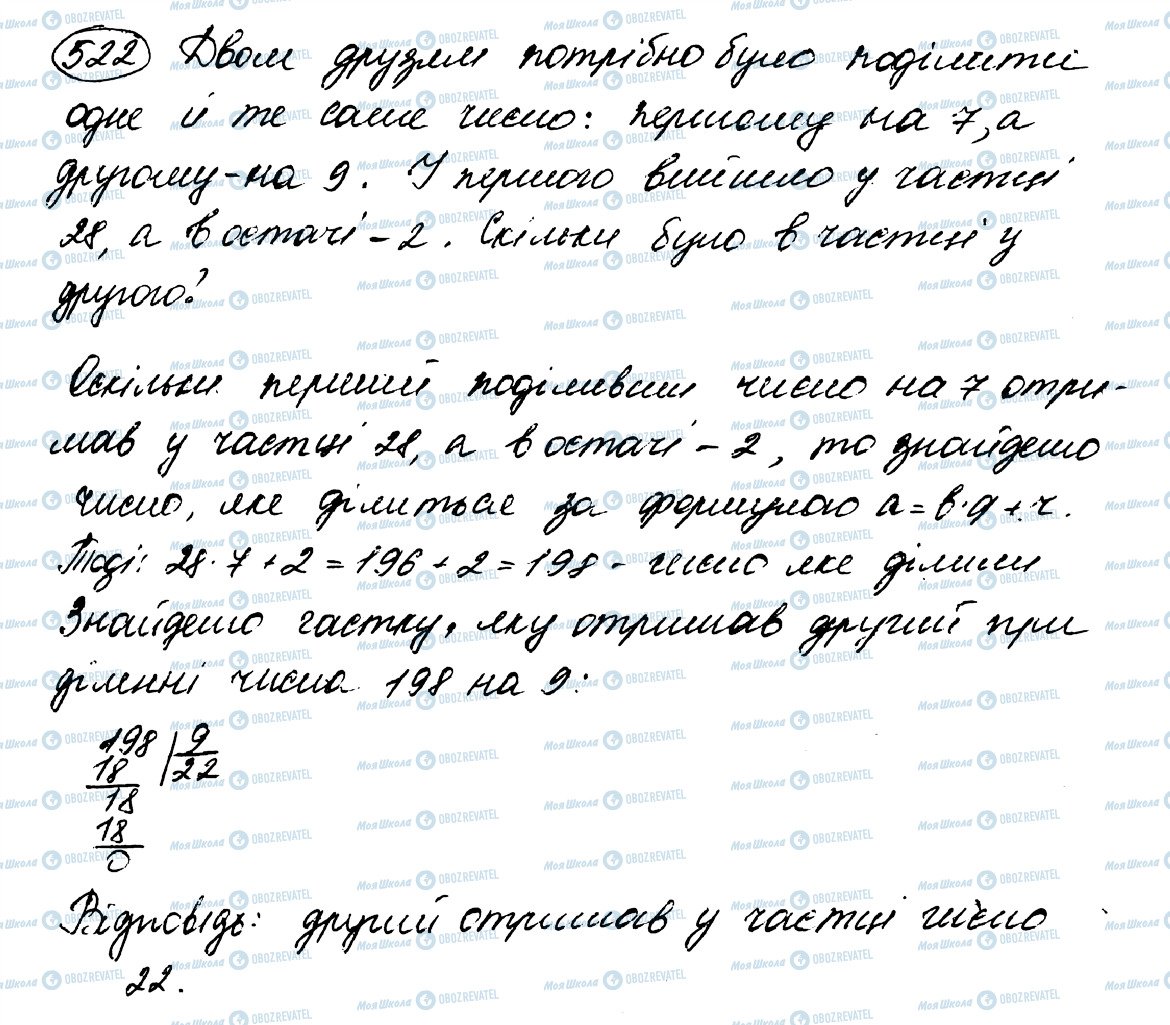 522 Двом друзям потрібно було поділити
одне й те саме число: першому на 7, а
другому - на 9. У першого вийшло у частці
28, а в остачі - 2. Скільки було в частці у
другого?
Оскільки перший поділивши число на 7 отри-
мав у частці 28, а в остачі - 2, то знайдемо
число, яке ділиться за формулою a = b · q + r.
Тоді: 28 · 7 + 2 = 196 + 2 = 198 - число яке ділили
Знайдемо частку, яку отримав другий при
діленні числа 198 на 9:
198 | 9
18 | 22
18
18
0
Відповідь: другий отримав у частці число
22.
Моя Школа OBOZREVATEL